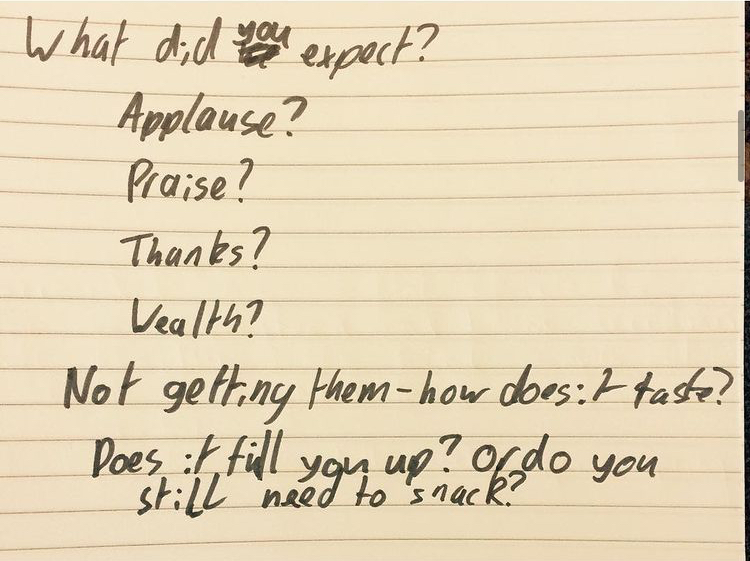 What did you expect?
Applause?
Praise?
Thanks?
Wealth?
Not getting them - how does it taste?
Does it fill you up? Or do you
still need to snack?